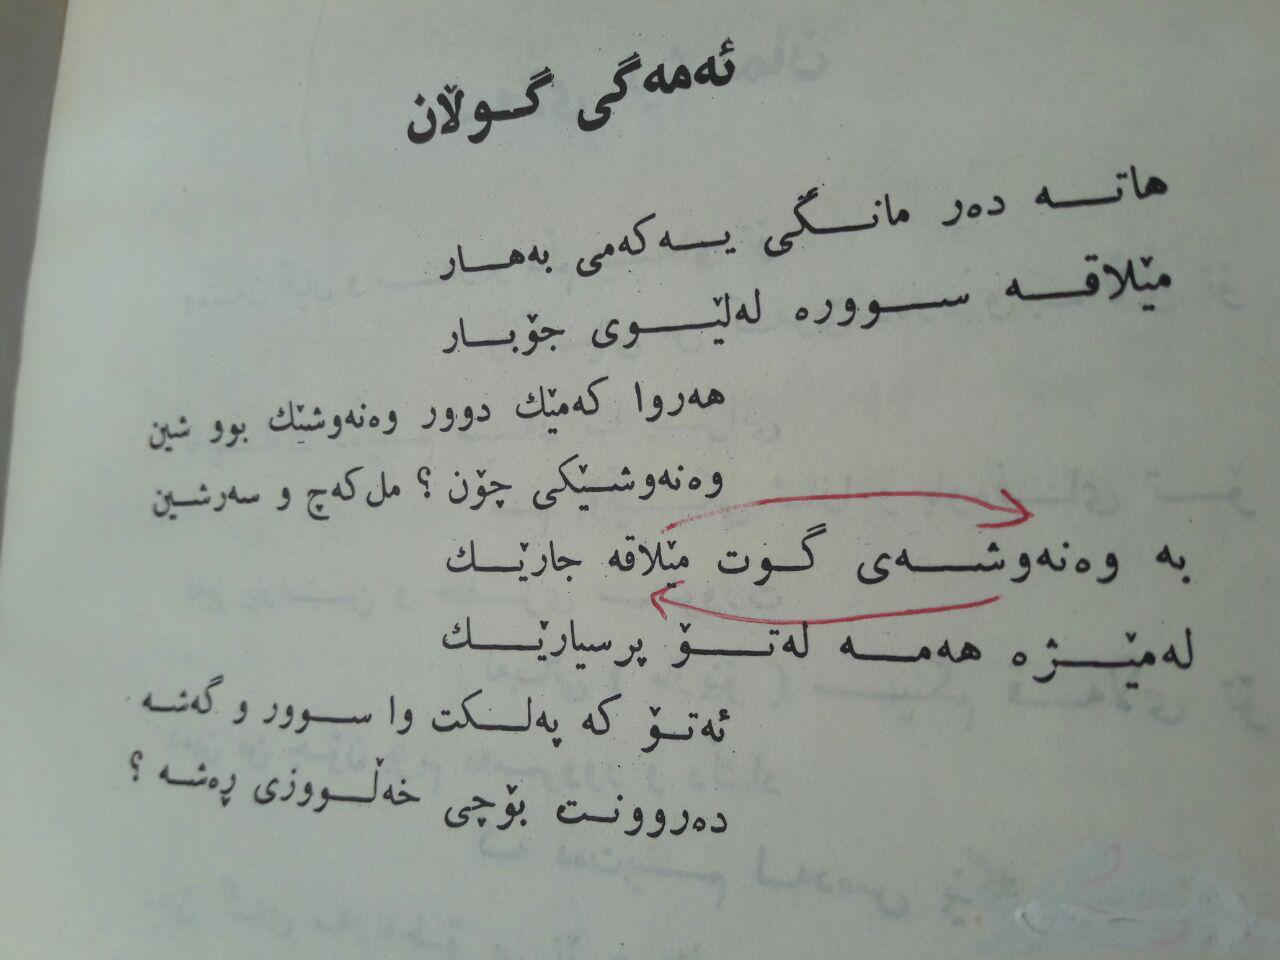 ئەمەگی گوڵان
هاتە دەر مانگی یەکەمی بەهار
مێلاقە سوورە لەلێوی جۆبار
هەروا کەمێك دوور وەنەوشێك بوو شین
وەنەوشێکی چۆن ؟ مل کەچ و سەرشین
بە وەنەوشەی گوت مێلاقە جارێك
لەمێژە هەمە لەتۆ پرسیارێك
ئەتۆ کە پەلکت وا سوور و گەشە
دەروونت بۆچی خەڵووزی ڕەشە ؟